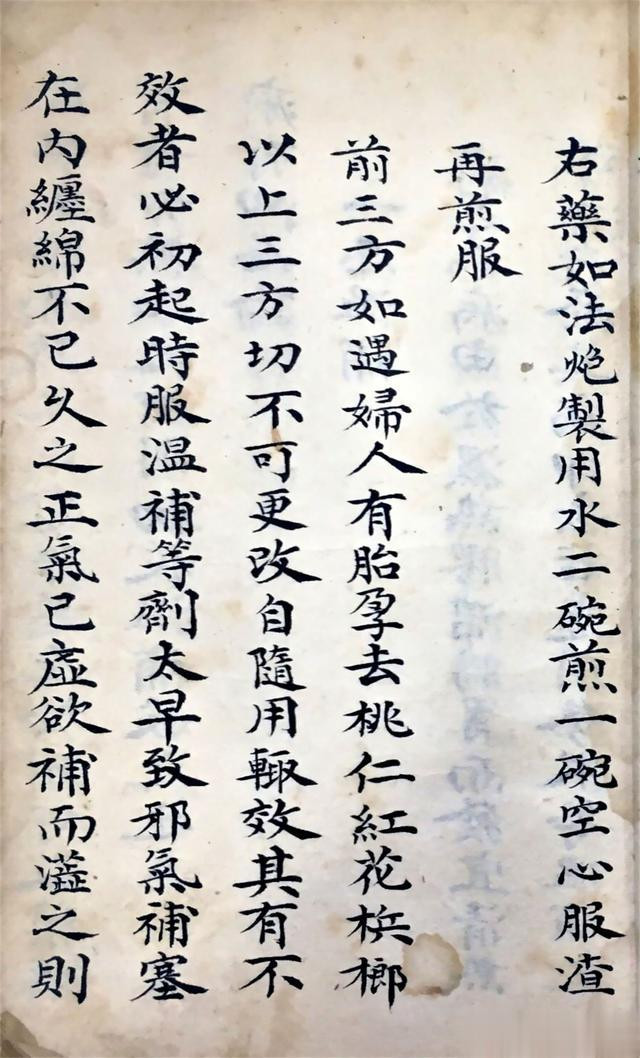 右藥如法炮製用水二碗煎一碗空心服渣
再煎服
前三方如遇婦人有胎孕去桃仁紅花梹榔
以上三方切不可更改自隨用輙效其有不
效者必初起時服温補等劑太早致邪氣補塞
在内纏綿不已久之正氣已虛欲補而澁之則